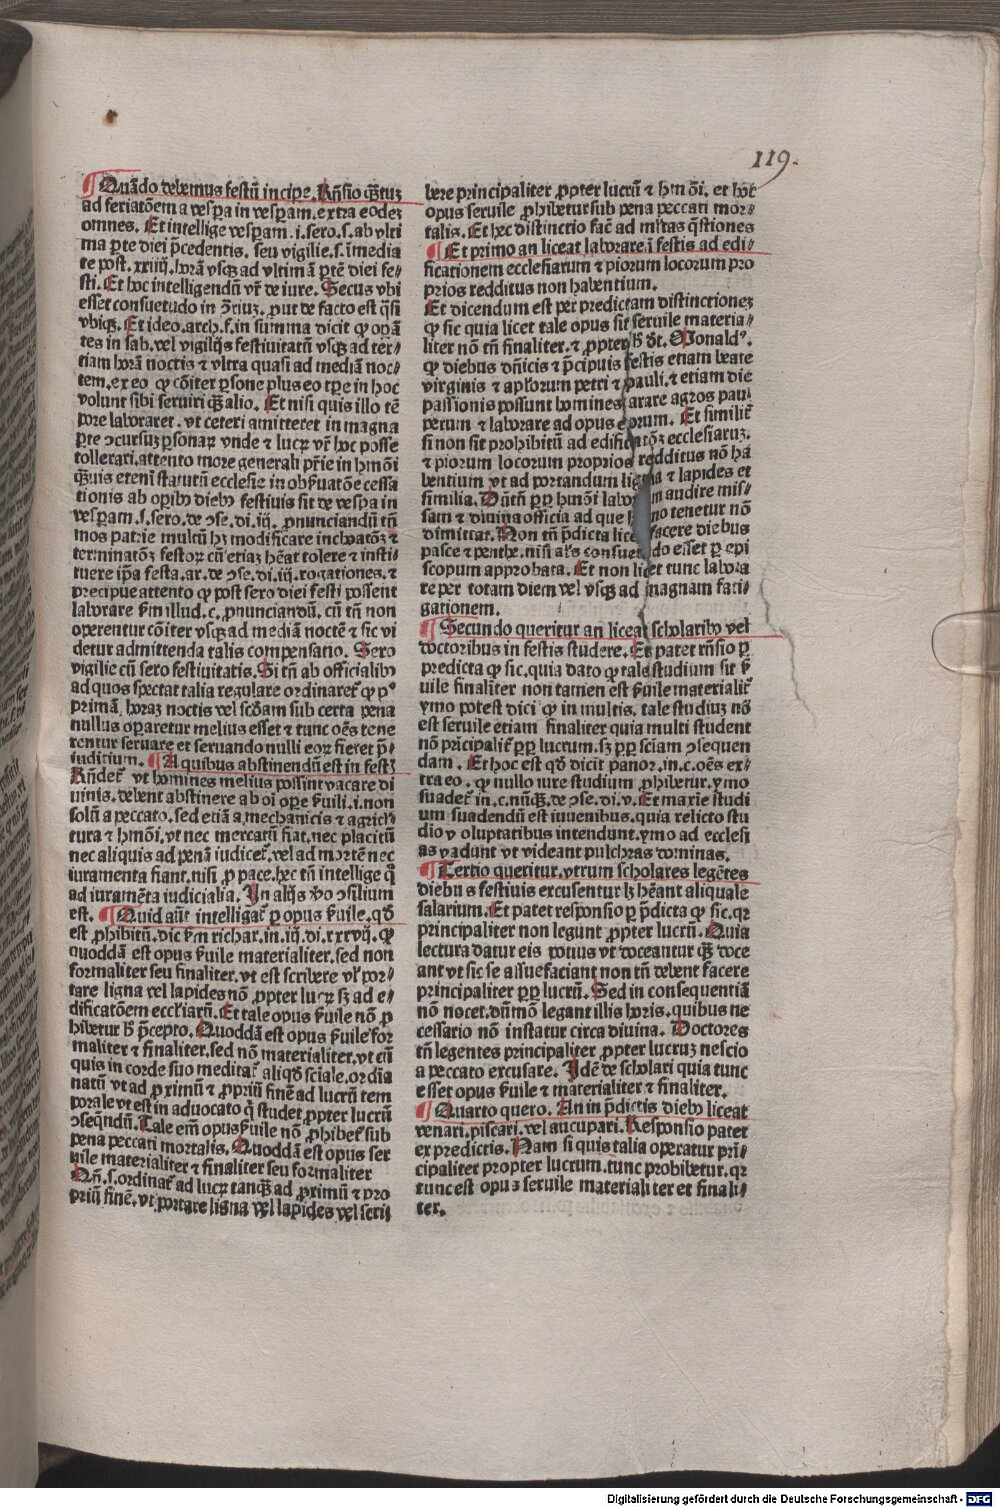 119.
Quãdo debemus festũ incipe. Rñsio q̃tuz
ad feriatõem a vespa in vesperam. extra eodez
omnes. Et intellige vesperam. i. sero. s. ab vlti
ma pte diei p̃cedentis. seu vigilie. s. ĩmedia
te post. xxiiij. horã vsq3 ad vltimã ptẽ diei fe⸗
sti. Et hoc intelligendũ vr̃ de iure. Secus vbi
esset consuetudo in ɔ̃riuz. put de facto est q̃si
vbiq3. Et ideo. arch. s. in summa dicit ꝙ opã
tes in sab. vel vigilijs festiuitatũ vsq3 ad ter⸗
tiam horã noctis et vltra quasi ad mediã noc⸗
tem. ex eo ꝙ cõiter psone plus eo tpe in hoc
volunt sibi seruiri q̃3 alio. Et nisi quis illo tẽ
pore laboraret. vt ceteri amitteret in magna
pte ɔcursuz psonaꝝ vnde ⁊ lucꝝ vr̃ hoc posse
tollerari. attento more generali pr̃ie in hmõi
q̃3uis etenĩ statutũ ecclesie in obẜuatõe cessa
tionis ab opib9 dieb9 festiuis sit de vespa in
vesperam. s. sero. de ɔse. di. iij. ꝓnunciandũ tñ
mos patrie multũ h3 modificare inchoatõ3 ⁊
terminatõ3 festoꝝ cũ etiaz hẽat tolere ⁊ insti⸗
tuere ip̃a festa. ar. de ɔse. di. iij. rogationes. ⁊
precipue attento ꝙ post sero diei festi possent
laborare ẜm illud. c. ꝓnunciandũ. cũ tñ non
operentur cõiter vsq3 ad mediã noctẽ ⁊ sic vi
detur admittenda talis compensatio. Sero
vigilie cũ sero festiuitatis. Si tñ ab officialib9
ad quos spectat talia regulare ordinaret̃ ꝙ p9
primã horaz noctis vel scd̃am sub certa pena
nullus oparetur melius esset ⁊ tunc oẽs tene
rentur seruare et seruando nulli eoꝝ fieret p̃⸗
iuditium. A quibus abstinendũ est in fest3
Rñdet̃ vt homines melius possint vacare di
uinis. debent abstinere ab oi ope ẜuili. i. non
solũ a peccato. sed etiã a mechanicis ⁊ agricl̃
tura ⁊ hmõi. vt nec mercatũ fiat. nec placitũ
nec aliquis ad penã iudicet̃. vel ad mortẽ nec
iuramenta fiant. nisi ꝓ pace. hec tñ intellige q̃
ad iuramẽta iudicialia. In alijs vo ɔsilium
est. Quid aũt intelligat̃ p opus ẜuile. qd̃
est ꝓhibitũ. dic ẜm richar. in. iij. di. xxxvij. ꝙ
quoddã est opus ẜuile materialiter. sed non
formaliter seu finaliter. vt est scribere vl̃ por⸗
tare ligna vel lapides nõ ꝓpter lucꝝ s3 ad e⸗
dificatõem eccl̃iarũ. Et tale opus ẜuile nõ ꝓ
hibetur h̃ p̃cepto. Quoddã est opus ẜuile for
maliter ⁊ finaliter. sed nõ materialiter. vt cũ
quis in corde suo meditat̃ aliqd̃ sciale. ordĩa
natũ vt ad ꝓximũ ⁊ ꝓpriũ finẽ ad lucrũ tem
porale vt est in aduocato q̃ studet ꝓpter lucrũ
ɔseq̃ndũ. Tale em̃ opus ẜuile nõ ꝓhibet̃ sub
pena peccati mortalis. Quoddã est opus ser
uile materialiter ⁊ finaliter seu formaliter
Qñ. s. ordinat̃ ad lucꝝ tanq̃3 ad ꝓximũ ⁊ pro
priũ finẽ. vt portare ligna vel lapides vel scri⸗
bere principaliter ꝓpter lucrũ ⁊ hmõi. et hoc̃
opus seruile ꝓhibetur sub pena peccati mor⸗
talis. Et hec distinctio fac̃ ad mr̃tas q̃stiones
Et primo an liceat laborare ĩ festis ad edi⸗
ficationem ecclesiarum ⁊ piorum locorum pro
prios redditus non habentium.
Et dicendum est per predictam distinctionez
ꝙ sic quia licet tale opus sit seruile materia⸗
liter nõ tñ finaliter. ⁊ propter h̃ dt̃. Monald9.
ꝙ diebus dñicis ⁊ p̃cipuis festis etiam beate
virginis ⁊ apl̃orum petri ⁊ pauli. ⁊ etiam die
passionis possunt homines arare agros pau⸗
perum ⁊ laborare ad opus eorum. Et similit̃
si non sit prohibitũ ad edificatõ3 ecclesiaruz.
⁊ piorum locorum proprios redditus nõ ha
bentium vt ad portandum ligna ⁊ lapides et
similia. Dũtñ pp hmõi labo in audire mis⸗
sam ⁊ diuina officia ad que h no tenetur nõ
dimittat. Non tñ p̃dicta lice facere diebus
pasce ⁊ penthe. nisi al's consue do esset p epi
scopum approbata. Et non licet tunc labora
re per totam diem vel vsq3 ad magnam fati⸗
gationem.
Secundo queritur an liceat scholarib9 vel
doctoribus in festis studere. Et patet rñsio p
predicta ꝙ sic. quia dato ꝙ tale studium sit ẜ
uile finaliter non tamen est ẜuile materialit̃
ymo potest dici ꝙ in multis. tale studiuz nõ
est seruile etiam finaliter quia multi student
nõ p̃ricipalit̃ pp lucrum. s3 pp sciam ɔsequen
dam. Et hoc est qd̃ dicit panor. in. c. oẽs ex⸗
tra eo. ꝙ nullo iure studium ꝓhibetur. ymo
suadet̃ in. c. nũq3. de ɔse. di. v. Et maxie studi
um suadendũ est iuuenibus. quia relicto stu
dio v oluptatibus intendunt. ymo ad ecclesi
as vadunt vt videant pulchras dominas.
Tertio queritur. vtrum scholares legẽtes
diebu s festiuis excusentur l3 hẽant aliquale
salarium. Et patet responsio p p̃dicta ꝙ sic. qr
principaliter non legunt ꝓpter lucrũ. Quia
lectura datur eis potius vt doceantur q̃3 doce
ant vt sic se assuefaciant non tñ debent facere
principaliter pp lucrũ. Sed in consequentiã
nõ nocet. dũmõ legant illis horis. quibus ne
cessario nõ instatur circa diuina. Doctores
tñ legentes principaliter ꝓpter lucruz nescio
a peccato excusare. Idẽ de scholari quia tunc
esset opus ẜuile ⁊ materialiter ⁊ finaliter.
Quarto quero. An in p̃dictis dieb9 liceat
venari. piscari. vel aucupari. Responsio patet
ex predictis. Nam si quis talia operatur prĩ⸗
cipaliter propter lucrum. tunc prohibetur. qr
tunc est opus seruile materiali ter et finali⸗
ter.
Digitalisierung gefördert durch die Deutsche Forschungsgemeinschaft - DFG